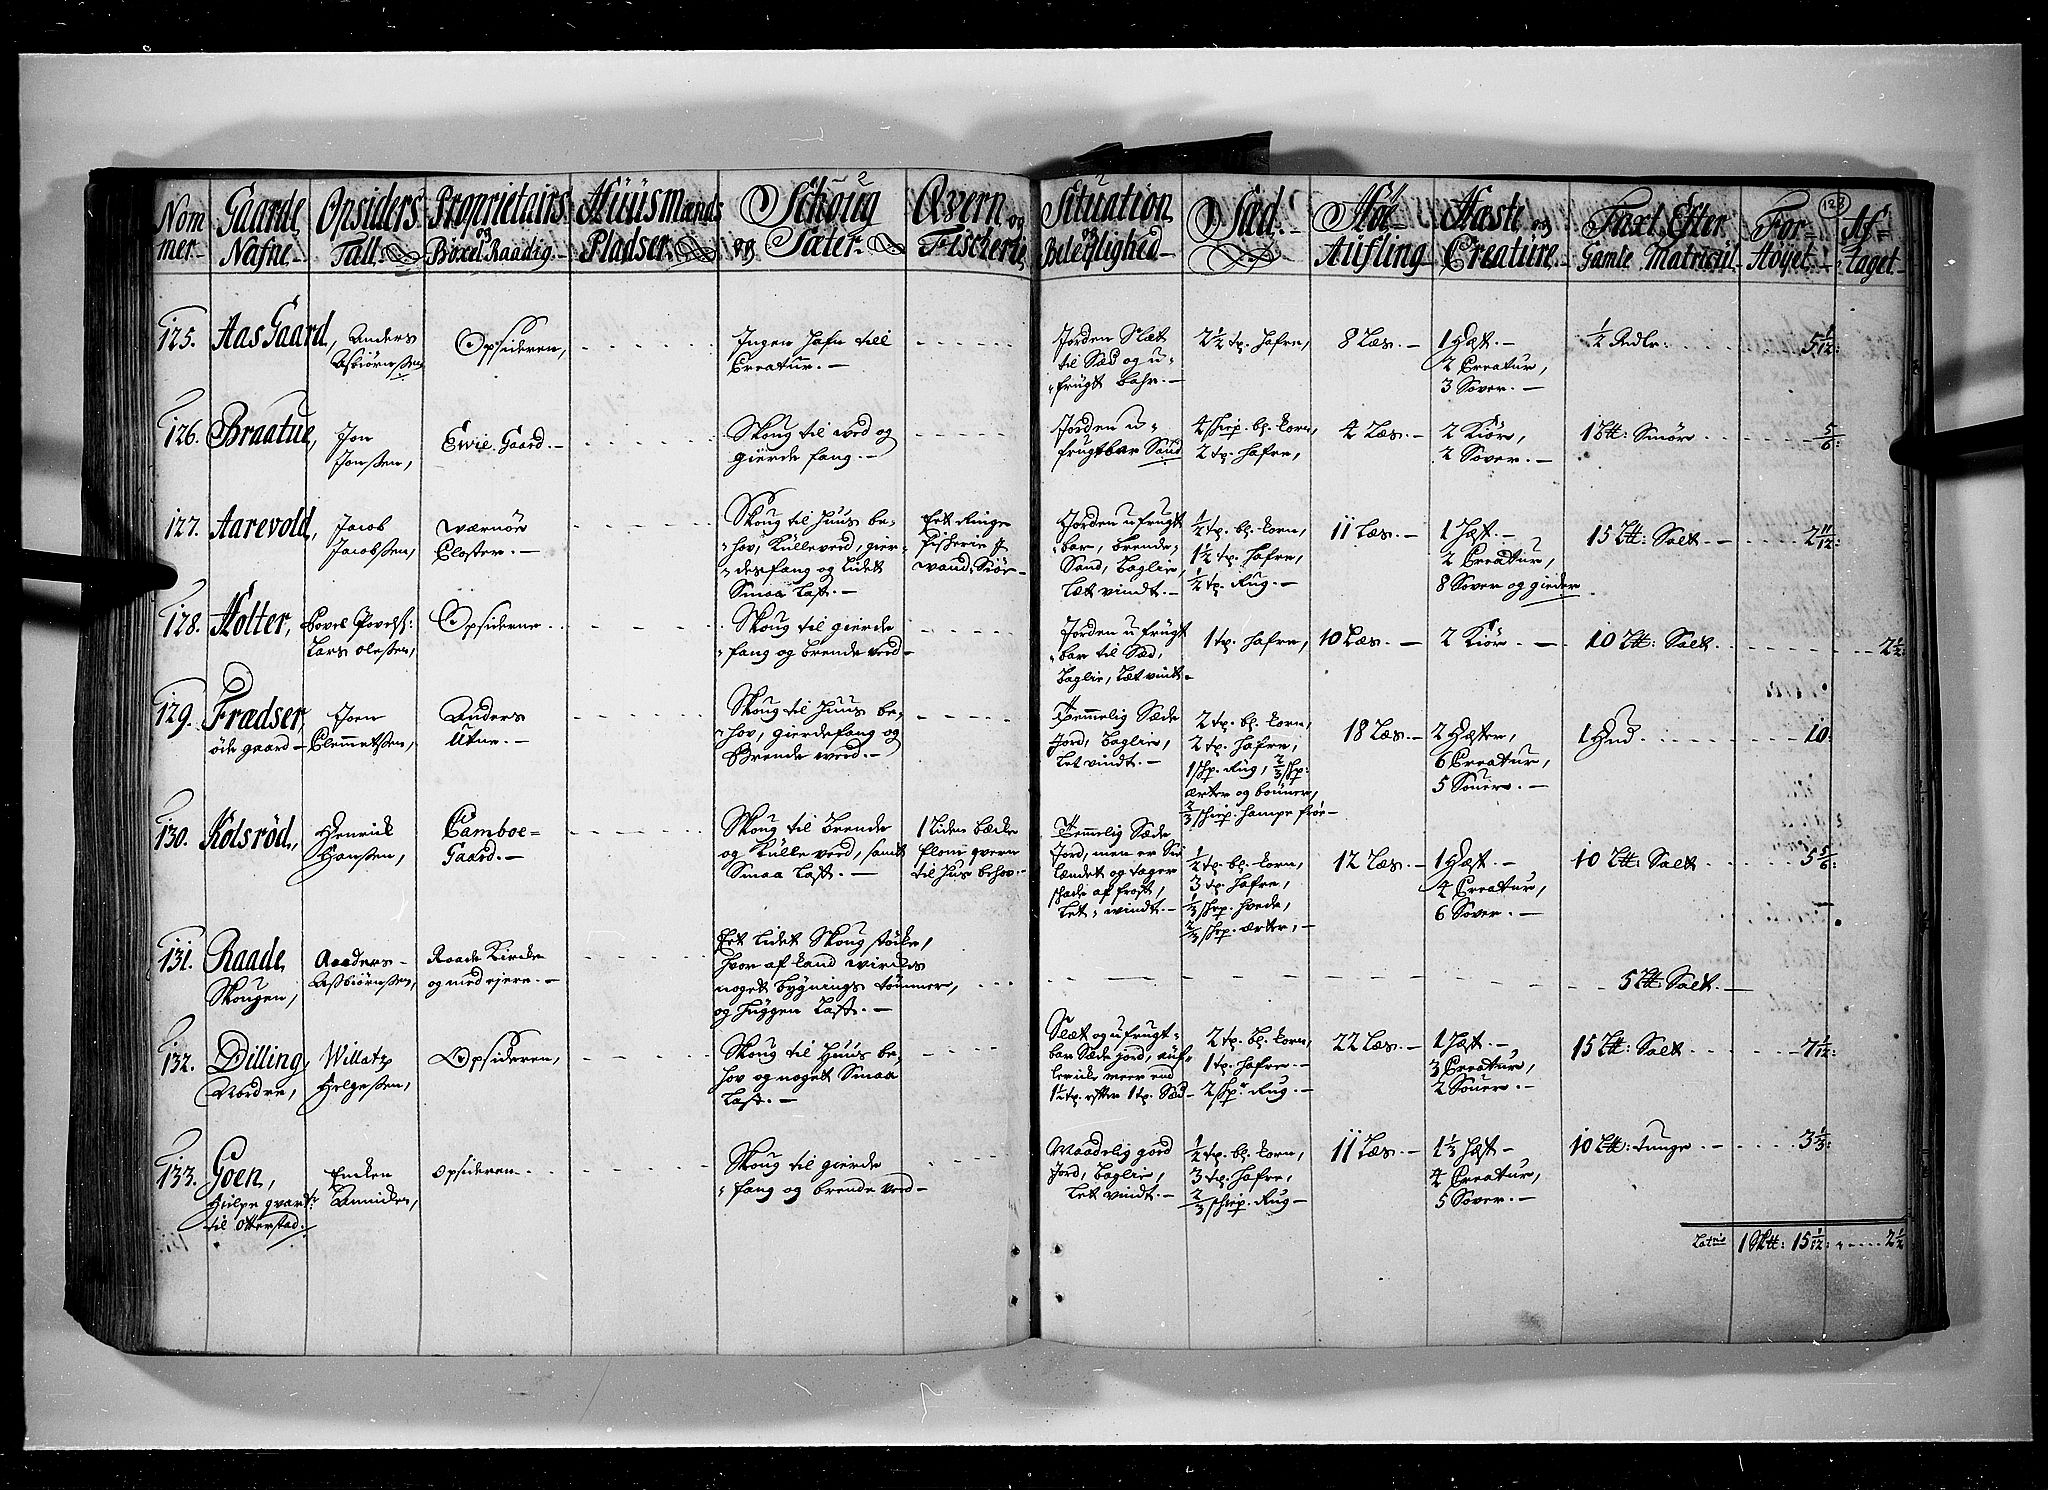 128
Nom
mer
Gaarde
Nafne
Opsiders
Tall
Proprietairs
og
Böxel Raadig
Huusmænds
Pladser
Schoug
og Sæter
Qvern og
Fischerie
Situation
og
Beleylighed
Sæd
Höe
Aufling
Hæste og
Creature
Taxt Efter
Gamle Matricul
For-
höyet
Af-
taget
125. Aas Gaard,
Anders
Asbiörnssen
Opsideren,
Ingen hafn till
Creatur.
Jorden Slæt
til Sæd og u-
frugt bahr.
2 1/2 tp. hafre,
8 Læs.
1 Hæst.
2 Creatur,
3 Sover.
1/2
5 1/12:
126. Braatue,
Jon
Jonssen,
Evie Gaard.
Skoug til ved og
gierde fang.
Jorden u-
frugtbar Sand
4 skiep. bl. korn,
2 tp. hafre,
4 Læs.
2 Kiör,
2 Sover.
1 L℔: Smör
5/6:
127. Aarevold,
Jacob
Jacobssen,
Wærnöe
Closter.
Skoug til Huus be-
hov, Kulleved, gier-
desfang og lidet
Smaa Last.
Eet Ringe
fiskerie J
Vand Siöe
Jorden ufrugt
bar, brende
Sand, baglie,
Læt vindt.
1/2 tp. bl. korn,
1 1/2 tp. hafre,
1/2 tp. Rug.
11 Læs.
1 Hæst.
2 Creatur,
8 Sover og gieder
15 L℔: Salt
2 11/12:
128. Holter,
Povel Povelss:
Lars olessen,
Opsiderne
Skoug til gierde
fang og brende ved
Jorden ufrugt
bar til Sæd,
baglie, Læt vint.
1 tp. hafre,
10 Læs.
2 Kiör.
10 L℔: Salt
2 1/2:
129. Frædser,
öde gaard
Joen
Clemmetssen,
Anders
Utne.
Skoug til Huus be-
hov, gierdefang og
Brende ved.
Temmelig Sæde
Jord, baglie,
Let vindt.
2 tp. bl. korn,
2 tp. hafre,
1 skp. Rug, 2/3 skp:
ærter og bonner,
2/3 skiep. hampe fröe
18 Læs.
2 Hæster,
6 Creatur,
5 Souer.
1 Hud
10:
130. Kolsröd,
Henrick
Hanssen,
Camboe-
Gaard.
Skoug til brende
og Kulle ved, samt
Smaa Last.
1 liden bæcke
flom qvern
til Hus behov.
Temmelig Sæde
Jord, men er Sid
lændet og tager
skade af frost,
Let vindt.
1/2 tp. bl. korn,
3 tp. hafre,
1/3 skep. hvede,
2/3 skep. ærter,
12 Læs
1 Hæst
4 Creatur,
6 Sover.
10 L℔: Salt
5 5/6:
131. Raade
Skougen,
Anders
Asbiörnssen,
Raade Kircke
og med ejere.
Eet lidet Skoug støcke,
hvor af kand virckes
noget bygnings tömmer,
og huggen Last.
5 L℔ Salt.
132. Dilling
Nordre,
Willatz
Helgessen,
Opsideren,
Skoug til Huus be-
hov og noget Smaa
Last.
Slæt og ufrugt-
bar Sæde jord, auf-
ler icke meer end
1 1/2 tp. efter 1 tp. Sæd
2 tp. bl. korn,
1 tp. hafre.
2 skp. Rug.
22 Læs.
1 Hæst.
3 Creatur,
2 Souer.
15 L℔: Salt
7 1/12:
133. Goen,
Hielpe qvart:
til Otterstad.
Encken
Anniken,
Opsideren
Skoug til gierde
fang og brende ved
Maadelig god
Jord, baglie,
Let vindt.
1/2 tp. bl. korn,
3 tp. hafre,
2/3 skiep. Rug
11 Læs.
1 1/3 Hæst
4 Creatur,
5 Sover.
10 L℔: tunge
3 1/3:
Latris 1 Sk℔: 15 1/12: 2 1/2